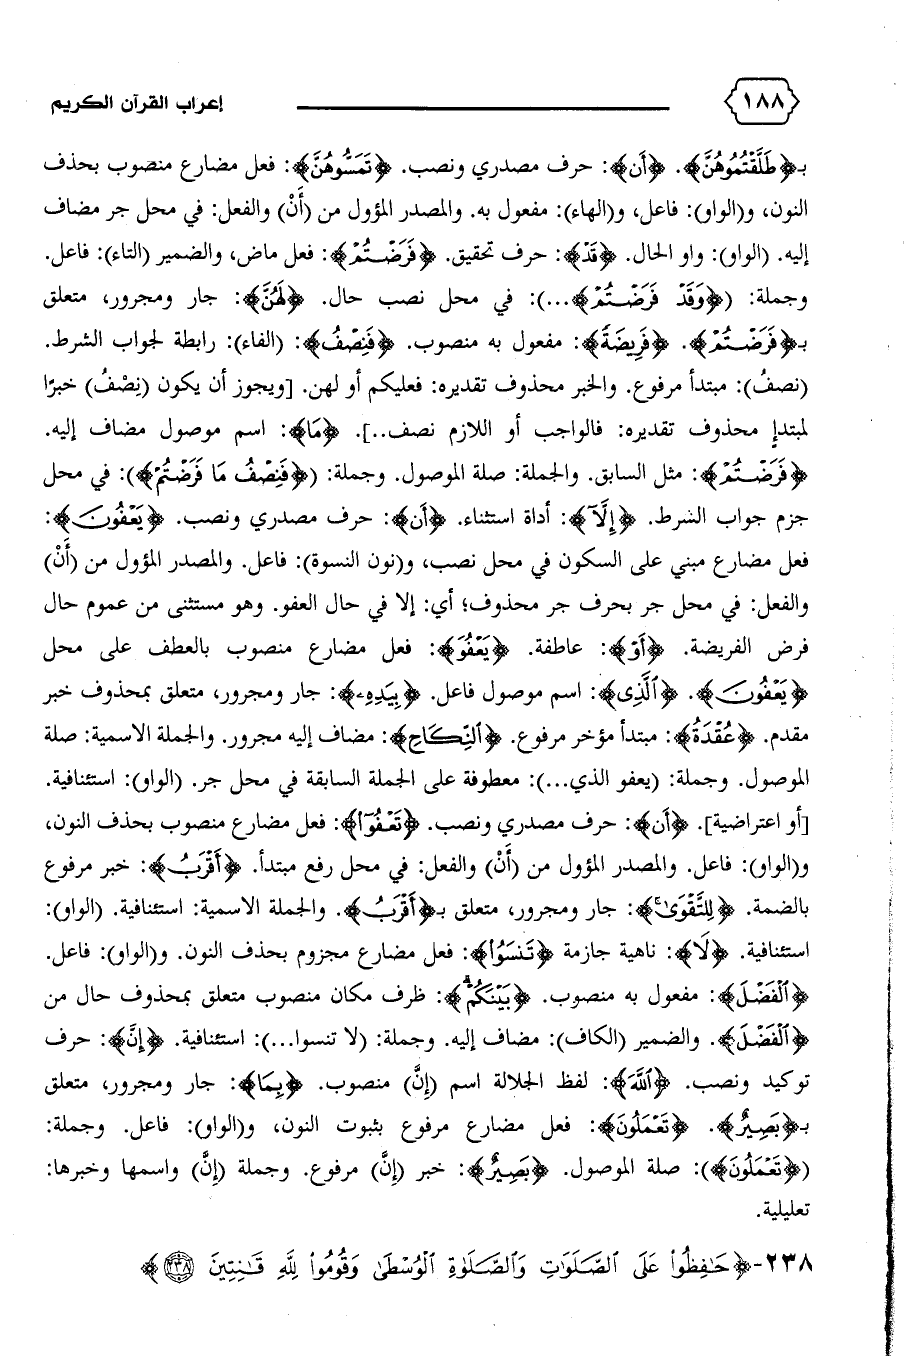 ١٨٨ إعراب القرآن الكريم
بـ﴿طَلَّقْتُمُوهُنَّ﴾. ﴿أَن﴾: حرف مصدري ونصب. ﴿تَمَسُّوهُنَّ﴾: فعل مضارع منصوب بحذف
النون، و(الواو): فاعل، و(الهاء): مفعول به. والمصدر المؤول من (أَنْ) والفعل: في محل جر مضاف
إليه. (الواو): واو الحال. ﴿قَدْ﴾: حرف تحقيق. ﴿فَرَضْتُمْ﴾: فعل ماض، والضمير (التاء): فاعل.
وجملة: (﴿وَقَدْ فَرَضْتُمْ﴾...): في محل نصب حال. ﴿لَهُنَّ﴾: جار ومجرور، متعلق
بـ﴿فَرَضْتُمْ﴾. ﴿فَرِيضَةً﴾: مفعول به منصوب. ﴿فَنِصْفُ﴾: (الفاء): رابطة لجواب الشرط.
(نصفُ): مبتدأ مرفوع. والخبر محذوف تقديره: فعليكم أو لهن. [ويجوز أن يكون (نِصْفُ) خبرًا
لمبتدإٍ محذوف تقديره: فالواجب أو اللازم نصف..]. ﴿مَا﴾: اسم موصول مضاف إليه.
﴿فَرَضْتُمْ﴾: مثل السابق. والجملة: صلة الموصول. وجملة: (﴿فَنِصْفُ مَا فَرَضْتُمْ﴾): في محل
جزم جواب الشرط. ﴿إِلَّآ﴾: أداة استثناء. ﴿أَن﴾: حرف مصدري ونصب. ﴿يَعْفُونَ﴾:
فعل مضارع مبني على السكون في محل نصب، و(نون النسوة): فاعل. والمصدر المؤول من (أَنْ)
والفعل: في محل جر بحرف جر محذوف؛ أي: إلا في حال العفو. وهو مستثنى من عموم حال
فرض الفريضة. ﴿أَوْ﴾: عاطفة. ﴿يَعْفُوَ﴾: فعل مضارع منصوب بالعطف على محل
﴿يَعْفُونَ﴾. ﴿ٱلَّذِى﴾: اسم موصول فاعل. ﴿بِيَدِهِۦ﴾: جار ومجرور، متعلق بمحذوف خبر
مقدم. ﴿عُقْدَةُ﴾: مبتدأ مؤخر مرفوع. ﴿ٱلنِّكَاحِ﴾: مضاف إليه مجرور. والجملة الاسمية: صلة
الموصول. وجملة: (يعفو الذي...): معطوفة على الجملة السابقة في محل جر. (الواو): استئنافية.
[أو اعتراضية]. ﴿أَن﴾: حرف مصدري ونصب. ﴿تَعْفُوٓا﴾: فعل مضارع منصوب بحذف النون،
و(الواو): فاعل. والمصدر المؤول من (أَنْ) والفعل: في محل رفع مبتدأ. ﴿أَقْرَبُ﴾: خبر مرفوع
بالضمة. ﴿لِلتَّقْوَىٰ﴾: جار ومجرور، متعلق بـ﴿أَقْرَبُ﴾. والجملة الاسمية: استئنافية. (الواو):
استئنافية. ﴿لَا﴾: ناهية جازمة ﴿تَنسَوُا﴾: فعل مضارع مجزوم بحذف النون. و(الواو): فاعل.
﴿ٱلْفَضْلَ﴾: مفعول به منصوب. ﴿بَيْنَكُمْ﴾: ظرف مكان منصوب متعلق بمحذوف حال من
﴿ٱلْفَضْلَ﴾. والضمير (الكاف): مضاف إليه. وجملة: (لا تنسوا...): استئنافية. ﴿إِنَّ﴾: حرف
توكيد ونصب. ﴿ٱللَّهَ﴾: لفظ الجلالة اسم (إِنَّ) منصوب. ﴿بِمَا﴾: جار ومجرور، متعلق
بـ﴿بَصِيرٌ﴾. ﴿تَعْمَلُونَ﴾: فعل مضارع مرفوع بثبوت النون، و(الواو): فاعل. وجملة:
(﴿تَعْمَلُونَ﴾): صلة الموصول. ﴿بَصِيرٌ﴾: خبر (إِنَّ) مرفوع. وجملة (إِنَّ) واسمها وخبرها:
تعليلية.
٢٣٨-﴿حَٰفِظُوا۟ عَلَى ٱلصَّلَوَٰتِ وَٱلصَّلَوٰةِ ٱلْوُسْطَىٰ وَقُومُوا۟ لِلَّهِ قَٰنِتِينَ ٢٣٨﴾